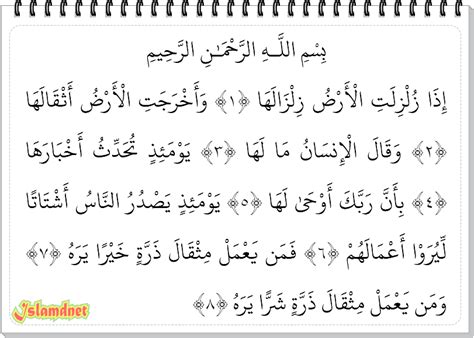 بِسْمِ اللَّـهِ الرَّحْمَـٰنِ الرَّحِيمِ
إِذَا زُلْزِلَتِ الْأَرْضُ زِلْزَالَهَا ﴿١﴾ وَأَخْرَجَتِ الْأَرْضُ أَثْقَالَهَا
﴿٢﴾ وَقَالَ الْإِنسَانُ مَا لَهَا ﴿٣﴾ يَوْمَئِذٍ تُحَدِّثُ أَخْبَارَهَا
﴿٤﴾ بِأَنَّ رَبَّكَ أَوْحَىٰ لَهَا ﴿٥﴾ يَوْمَئِذٍ يَصْدُرُ النَّاسُ أَشْتَاتًا
لِّيُرَوْا أَعْمَالَهُمْ ﴿٦﴾ فَمَن يَعْمَلْ مِثْقَالَ ذَرَّةٍ خَيْرًا يَرَهُ ﴿٧﴾
وَمَن يَعْمَلْ مِثْقَالَ ذَرَّةٍ شَرًّا يَرَهُ ﴿٨﴾
Islamdnet